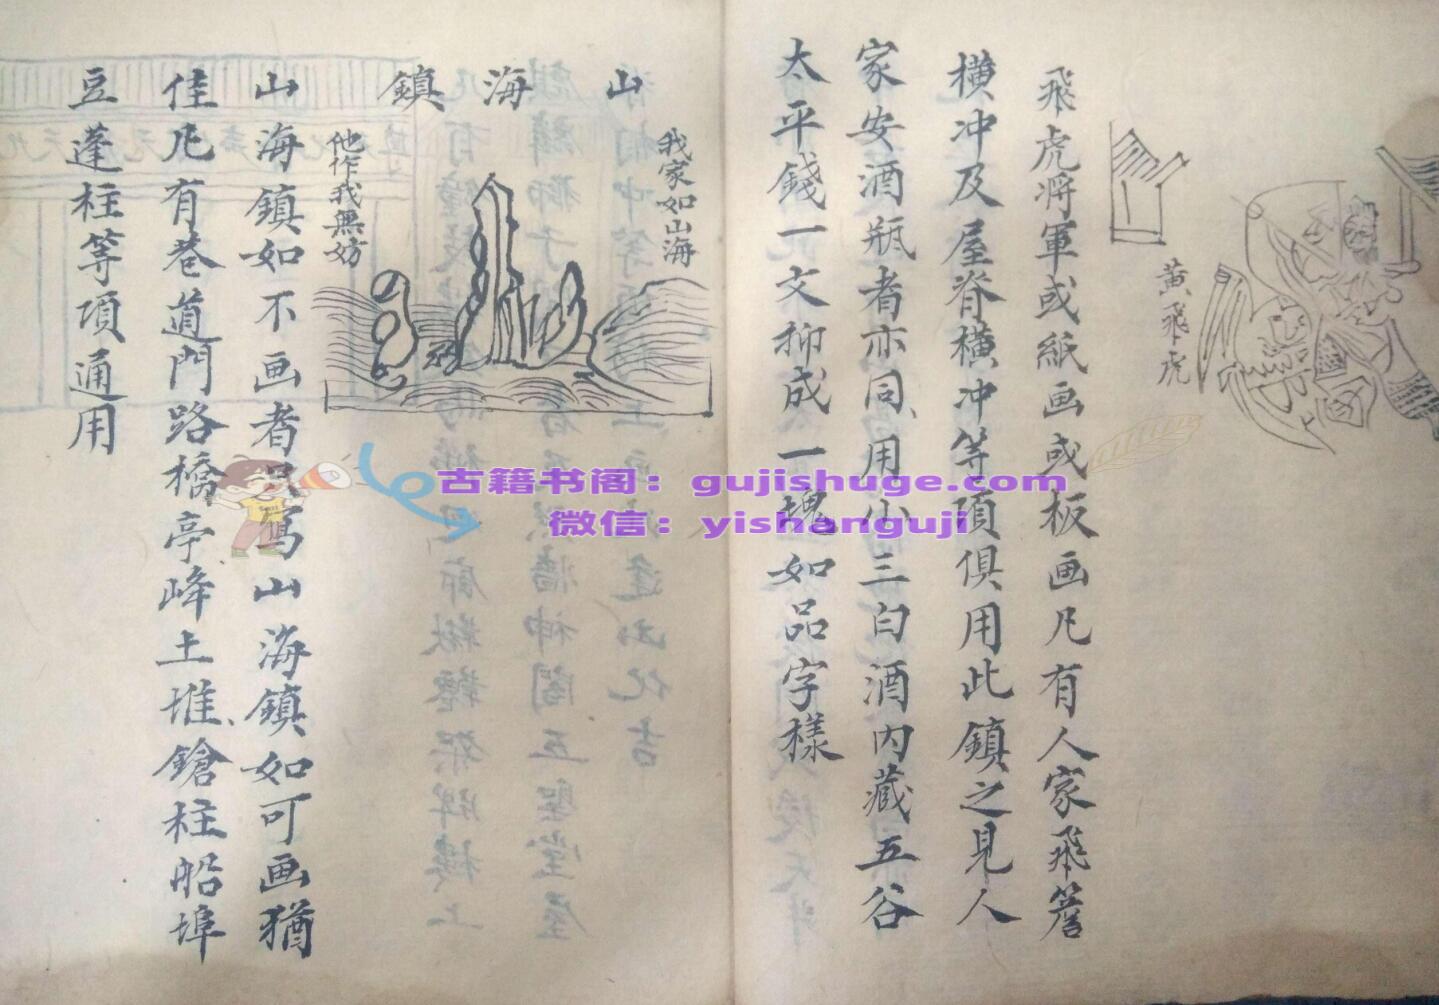 黄飛虎
飛虎将軍或紙画或板画凡有人家飛簷
横冲及屋脊横冲等項俱用此鎮之見人
家安酒瓶者亦同用小三白酒内藏五谷
太平錢一文抑成一塊如品字樣
山海鎮
我家如山海
他作我無妨
山海鎮如不画者只写山海鎮如可画猶
佳凡有巷道門路橋亭峰土堆鎗柱船埠
豆蓬柱等項通用
古籍书阁：gujishuge.com
微信：yishanguji